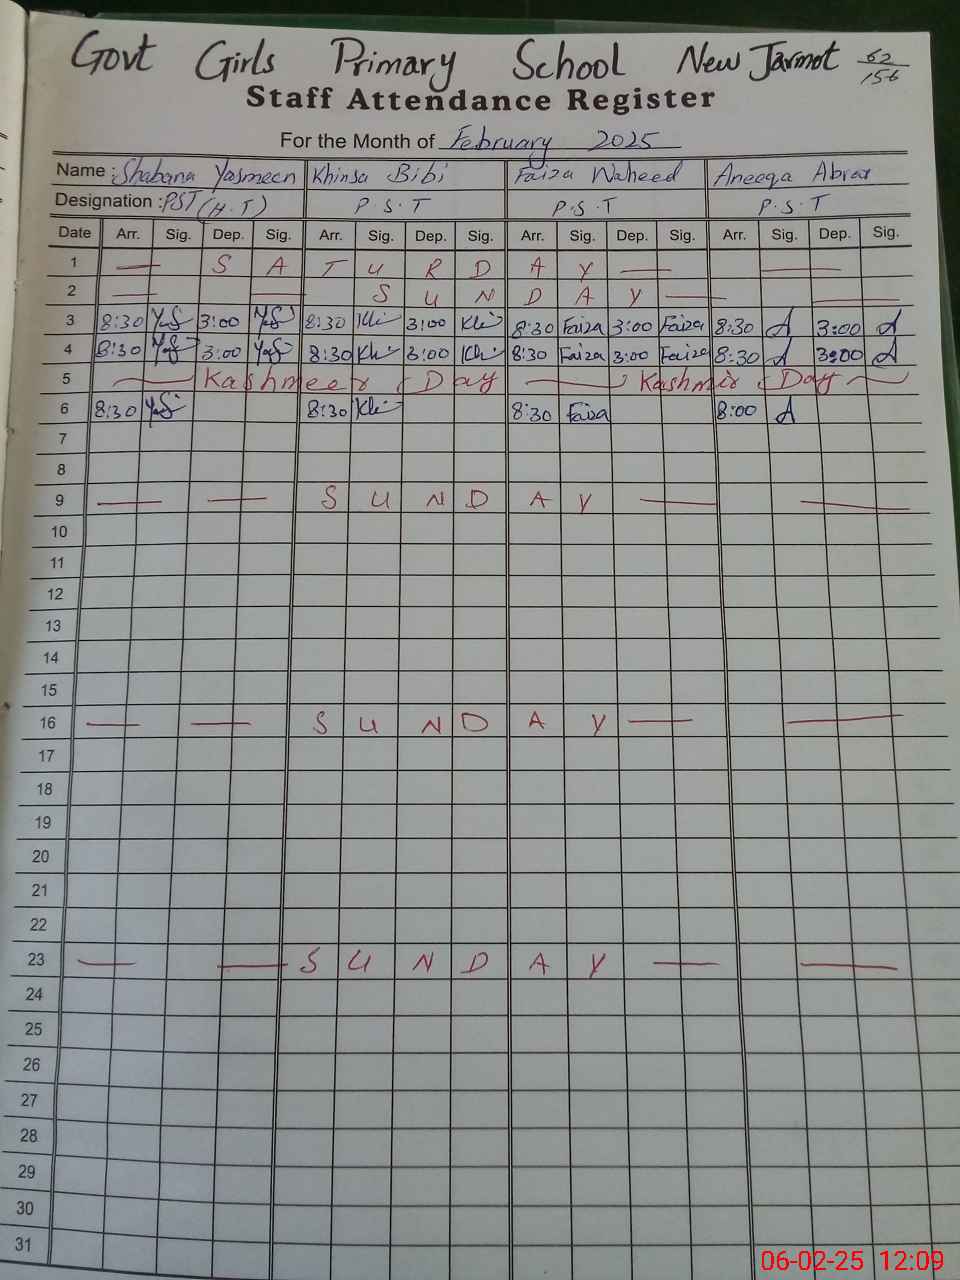 Govt Girls Primary School New Jarmot 62/156
Staff Attendance Register
For the Month of February 2025
Name : Shabana Yasmeen Khinsa Bibi Faiza Waheed Aneeqa Abrar
Designation : PST (H.T) P.S.T P.S.T P.S.T
Date Arr. Sig. Dep. Sig. Arr. Sig. Dep. Sig. Arr. Sig. Dep. Sig. Arr. Sig. Dep. Sig.
1 — S A T U R D A Y — —
2 — — S U N D A Y — —
3 8:30 3:00 8:30 Khi 3:00 Khi 8:30 Faiza 3:00 Faiza 8:30 A 3:00 A
4 8:30 3:00 8:30 Khi 3:00 Khi 8:30 Faiza 3:00 Faiza 8:30 A 3:00 A
5 Kashmeer Day Kashmir Day
6 8:30 8:30 Khi 8:30 Faiza 8:00 A
7
8
9 — — S U N D A Y — —
10
11
12
13
14
15
16 — — S U N D A Y — —
17
18
19
20
21
22
23 — — S U N D A Y — —
24
25
26
27
28
29
30
31
06-02-25 12:09